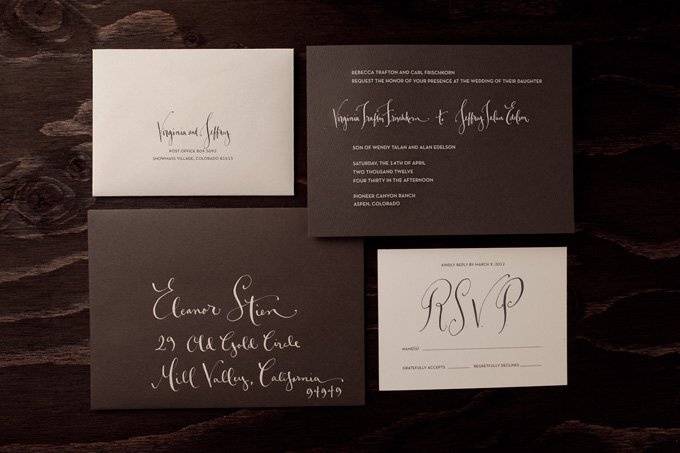 Virginia and Jeffrey
POST OFFICE BOX 5092
SNOWMASS VILLAGE, COLORADO 81615
REBECCA TRAFTON AND CARL FRISCHKORN
REQUEST THE HONOR OF YOUR PRESENCE AT THE WEDDING OF THEIR DAUGHTER
Virginia Trafton Frischkorn to Jeffrey Talan Edelson
SON OF WENDY TALAN AND ALAN EDELSON
SATURDAY, THE 14TH OF APRIL
TWO THOUSAND TWELVE
FOUR THIRTY IN THE AFTERNOON
PIONEER CANYON RANCH
ASPEN, COLORADO
Eleanor Stien
29 Old Gold Circle
Mill Valley, California
94949
KINDLY REPLY BY MARCH 9, 2012
RSVP
NAME(S)
GRATEFULLY ACCEPTS REGRETFULLY DECLINES